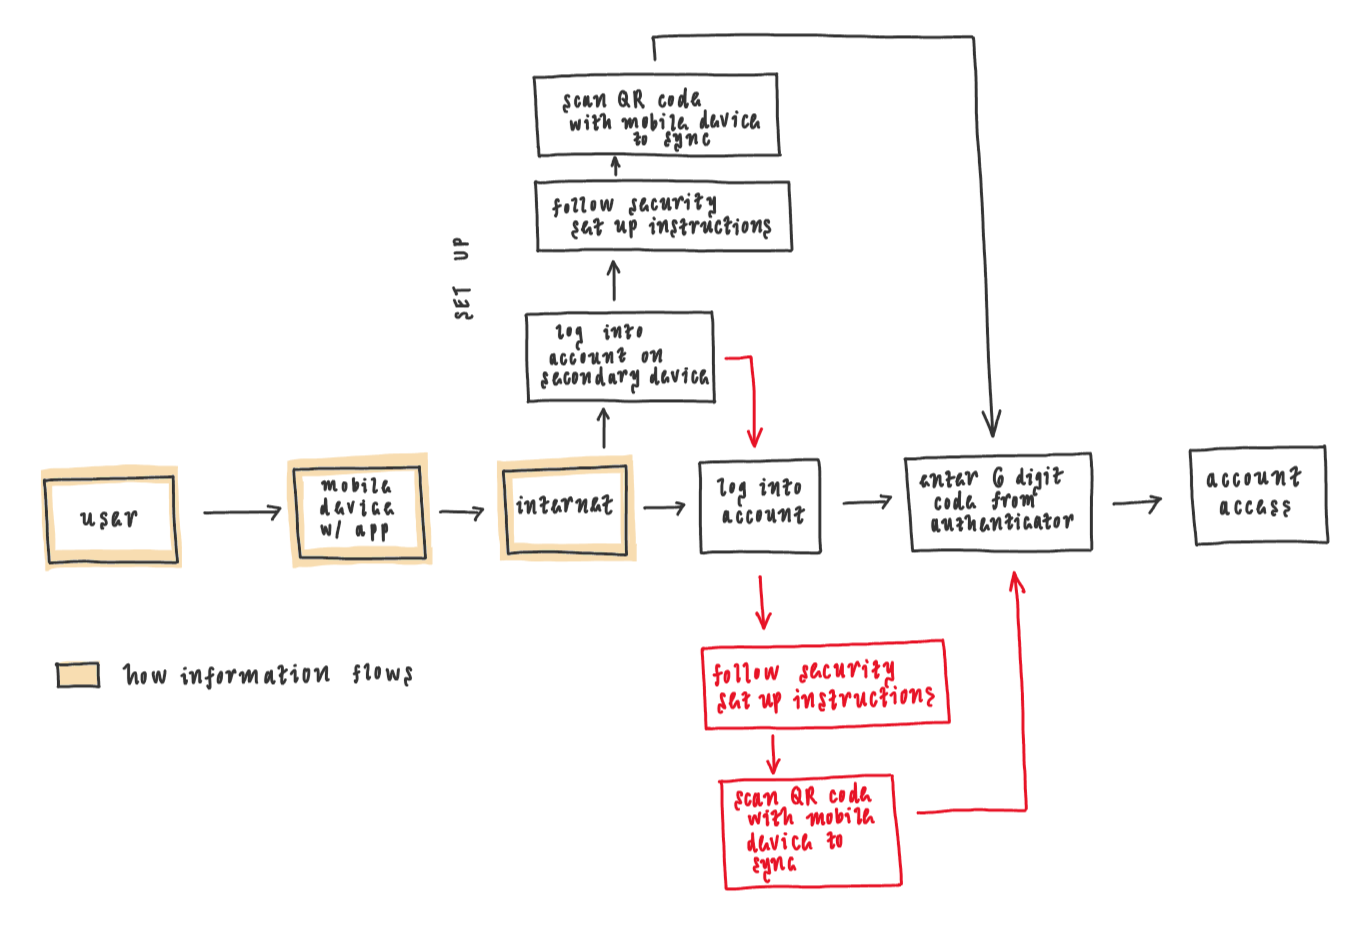 scan QR code
with mobile device
to sync
follow security
set up instructions
SET UP
log into
account on
secondary device
user
mobile
device
w/ app
internet
log into
account
enter 6 digit
code from
authenticator
account
access
how information flows
follow security
set up instructions
scan QR code
with mobile
device to
sync